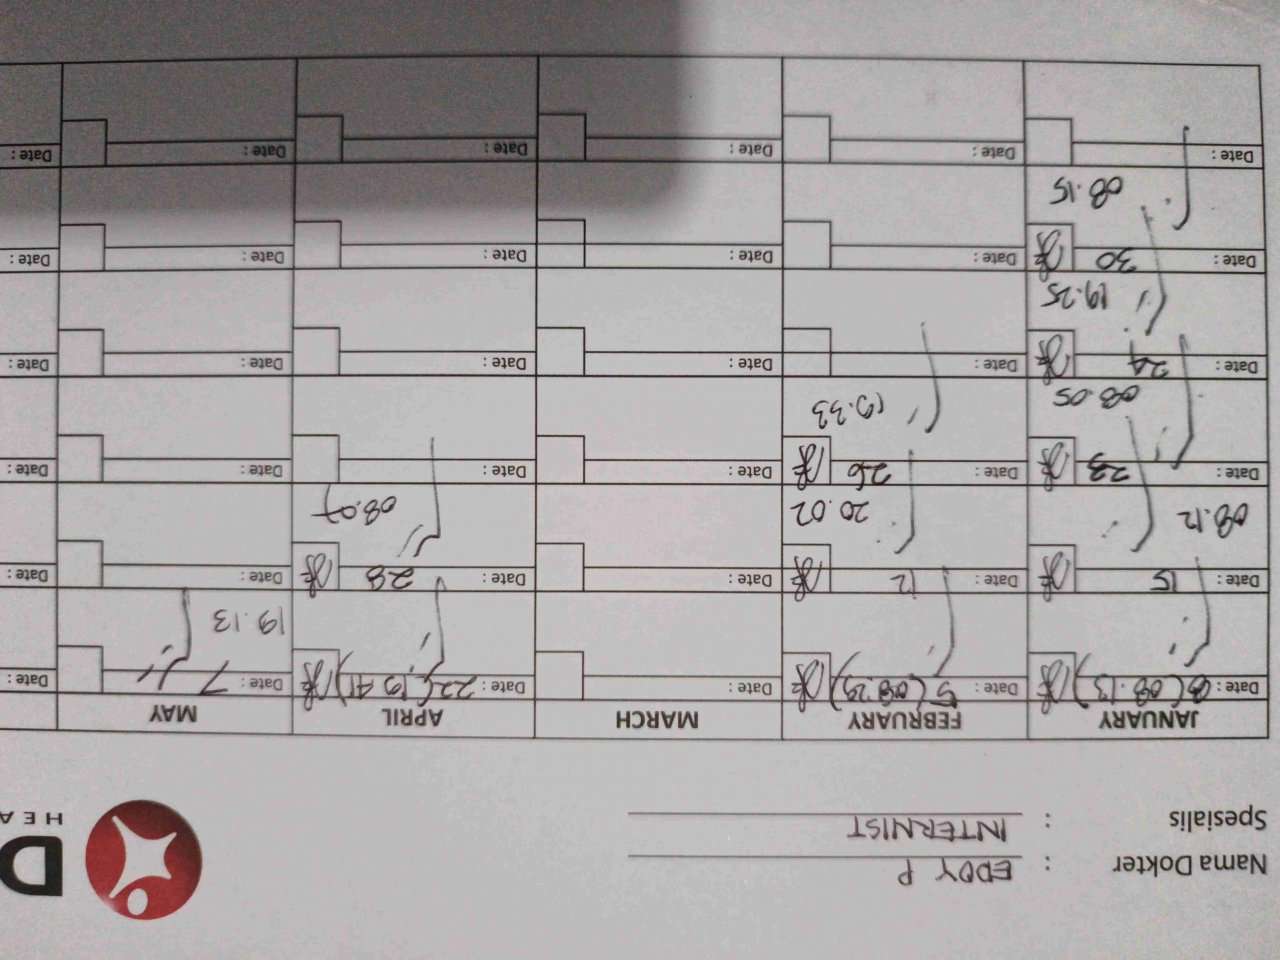 Nama Dokter : EDDY P
Spesialis : INTERNIST
D
HEA
JANUARY FEBRUARY MARCH APRIL MAY
Date: 8 (08.13) Date: 5 (08.29) Date: Date: 22 (19.41) Date: 7 Date:
19.13
Date: 15 Date: 12 Date: Date: 28 Date: Date:
08.12 20.02 08.07
Date: 23 Date: 26 Date: Date: Date: Date:
08.05 19.33
Date: 24 Date: Date: Date: Date: Date:
19.25
Date: 30 Date: Date: Date: Date: Date:
08.15
Date: Date: Date: Date: Date: Date: